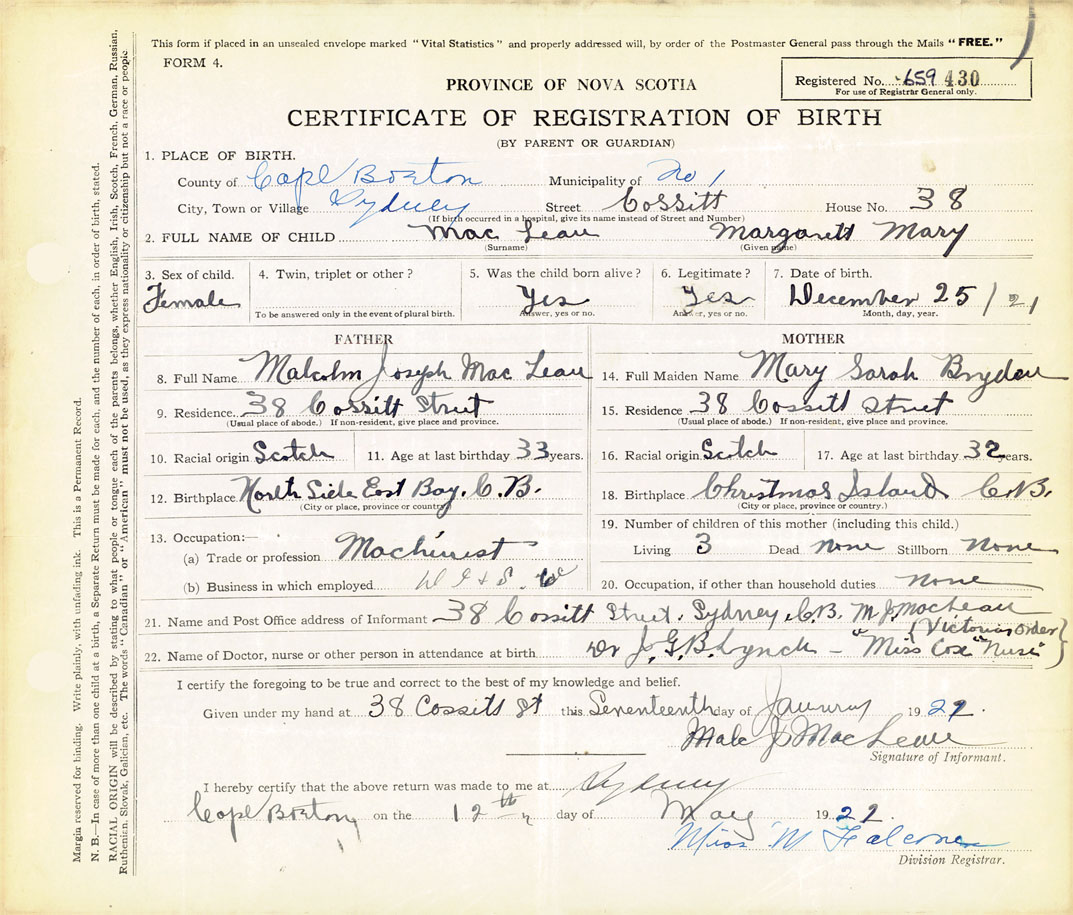 This form if placed in an unsealed envelope marked "Vital Statistics" and properly addressed will, by order of the Postmaster General pass through the Mails "FREE."
FORM 4.
Registered No. 659 430
For use of Registrar General only.
PROVINCE OF NOVA SCOTIA
CERTIFICATE OF REGISTRATION OF BIRTH
(BY PARENT OR GUARDIAN)
1. PLACE OF BIRTH.
County of Cape Breton Municipality of No 1
City, Town or Village Sydney Street Cossitt House No. 38
(If birth occurred in a hospital, give its name instead of Street and Number)
2. FULL NAME OF CHILD Mac Lean Margarett Mary
(Surname) (Given name)
3. Sex of child. 4. Twin, triplet or other? 5. Was the child born alive? 6. Legitimate? 7. Date of birth.
Female Yes Yes December 25/21
To be answered only in the event of plural birth. Answer, yes or no. Answer, yes or no. Month, day, year.
FATHER
8. Full Name Malcolm Joseph Mac Lean
9. Residence 38 Cossitt Street
(Usual place of abode.) If non-resident, give place and province.
10. Racial origin Scotch 11. Age at last birthday 33 years.
12. Birthplace North Side East Bay, C.B.
(City or place, province or country)
13. Occupation:—
(a) Trade or profession Machinist
(b) Business in which employed
MOTHER
14. Full Maiden Name Mary Sarah Bryden
15. Residence 38 Cossitt Street
(Usual place of abode.) If non-resident, give place and province.
16. Racial origin Scotch 17. Age at last birthday 32 years.
18. Birthplace Christmas Island C.B.
(City or place, province or country.)
19. Number of children of this mother (including this child.)
Living 3 Dead none Stillborn none
20. Occupation, if other than household duties none
21. Name and Post Office address of Informant 38 Cossitt Street, Sydney, C.B. M.J. MacLean
22. Name of Doctor, nurse or other person in attendance at birth Dr J. G. B. Lynch – "Miss Cox" Nurse {Victorias Order}
I certify the foregoing to be true and correct to the best of my knowledge and belief.
Given under my hand at 38 Cossitt St this Seventeenth day of January 1922.
Malc J. MacLean
Signature of Informant.
I hereby certify that the above return was made to me at Sydney
Cape Breton, on the 12th day of May 1922
Miss M Falconer
Division Registrar.
Margin reserved for binding. Write plainly, with unfading ink. This is a Permanent Record.
N. B.—In case of more than one child at a birth, a Separate Return must be made for each, and the number of each, in order of birth, stated.
RACIAL ORIGIN will be described by stating to what people or tongue each of the parents belongs, whether English, Irish, Scotch, French, German, Russian,
Ruthenian, Slovak, Galician, etc. The words "Canadian" or "American" must not be used, as they express nationality or citizenship but not a race or people